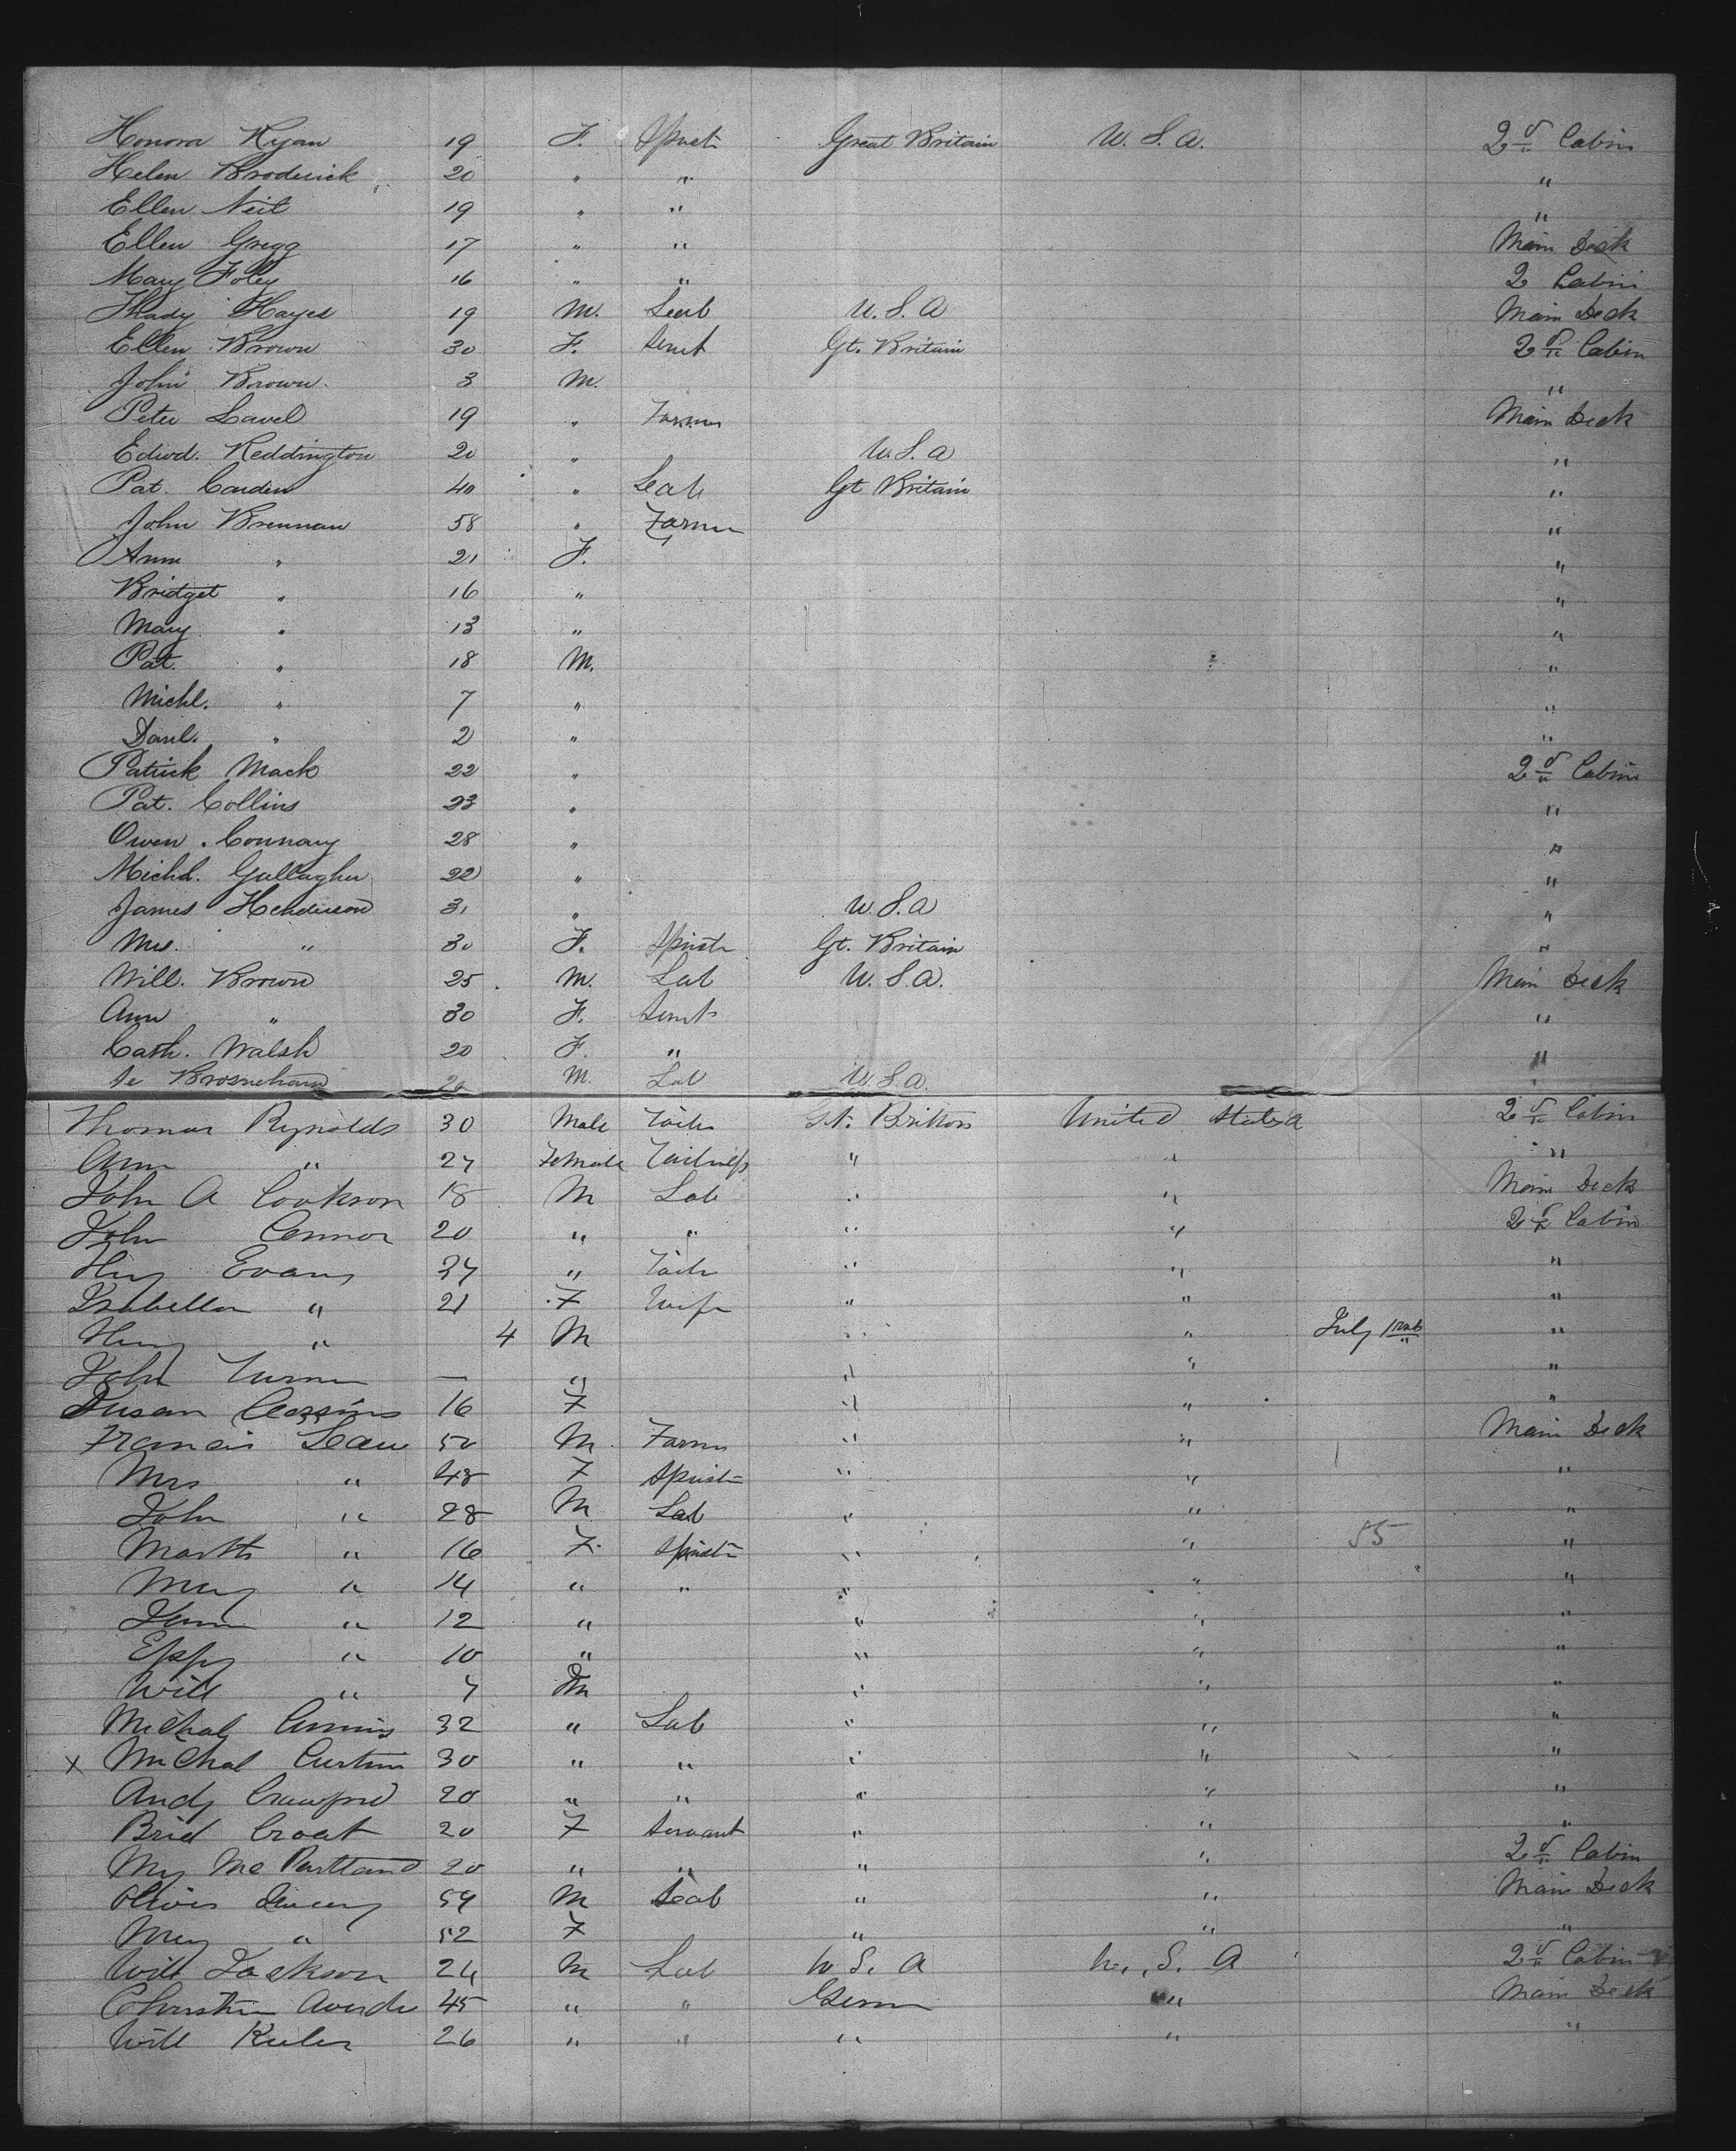 Honora Ryan 19 F. Spinstr Great Britain U.S.A. 2nd Cabin
Helen Broderick 20 " " "
Ellen Neil 19 " " "
Ellen Gregg 17 " " Main Deck
Mary Foley 16 " " 2 Cabin
Thady Hayes 19 M. Lab U.S.A Main Deck
Ellen Brown 30 F. Servt Gt. Britain 2nd Cabin
John Brown. 3 M. "
Peter Lavel 19 " Farmer Main Deck
Edwd. Reddington 20 " U.S.A "
Pat. Carden 40 " Lab Gt Britain "
John Brennan 58 " Farmer "
Ann " 21 F. "
Bridget " 16 " "
Mary " 13 " "
Pat. " 18 M. "
Michl. " 7 " "
Danl. " 2 " "
Patrick Mack 22 " 2nd Cabin
Pat. Collins 23 " "
Owen. Connary 28 " "
Michl. Gallagher 22 " "
James Henderson 31 " U.S.A "
Mrs. " 30 F. Spinstr Gt. Britain "
Will. Brown 25. M. Lab U.S.A. Main Deck
Ann " 30 F. Servt "
Cath. Walsh 20 F. " "
Brosnehan 20 M. Lab U.S.A. "
Thomas Rynolds 30 Male Gt. Britton United States 2nd Cabin
Ann " 27 Female " " "
John A Cookson 18 M Lab " " Main Deck
John Connor 20 " " " " 2nd Cabin
Hny Evans 37 " " " "
Isabella " 21 F Wife " " "
Hny " 4 M " " July "
John Turner — " " " "
Susan 16 F " " "
Francis Lean 50 M Farmer " " Main Deck
Mrs " 48 F Spinst " " "
John " 28 M Lab " " "
Marth " 16 F. Spinst " " 55 "
Mary " 14 " " " " "
" 12 " " " "
Eppy " 10 " " " "
Will " 7 M " " "
Michal 32 " Lab " " "
x Michal Curtin 30 " " " " "
Andy Crawford 20 " " " " "
Brid Croat 20 F Servant " " "
My McPartland 20 " " " " 2nd Cabin
Oliver 59 M Lab " " Main Deck
Mary " 52 F " " "
Will Jackson 24 M Lab U S. A U. S. A 2nd Cabin
45 " " Germ " Main Deck
Will 26 " " " " "